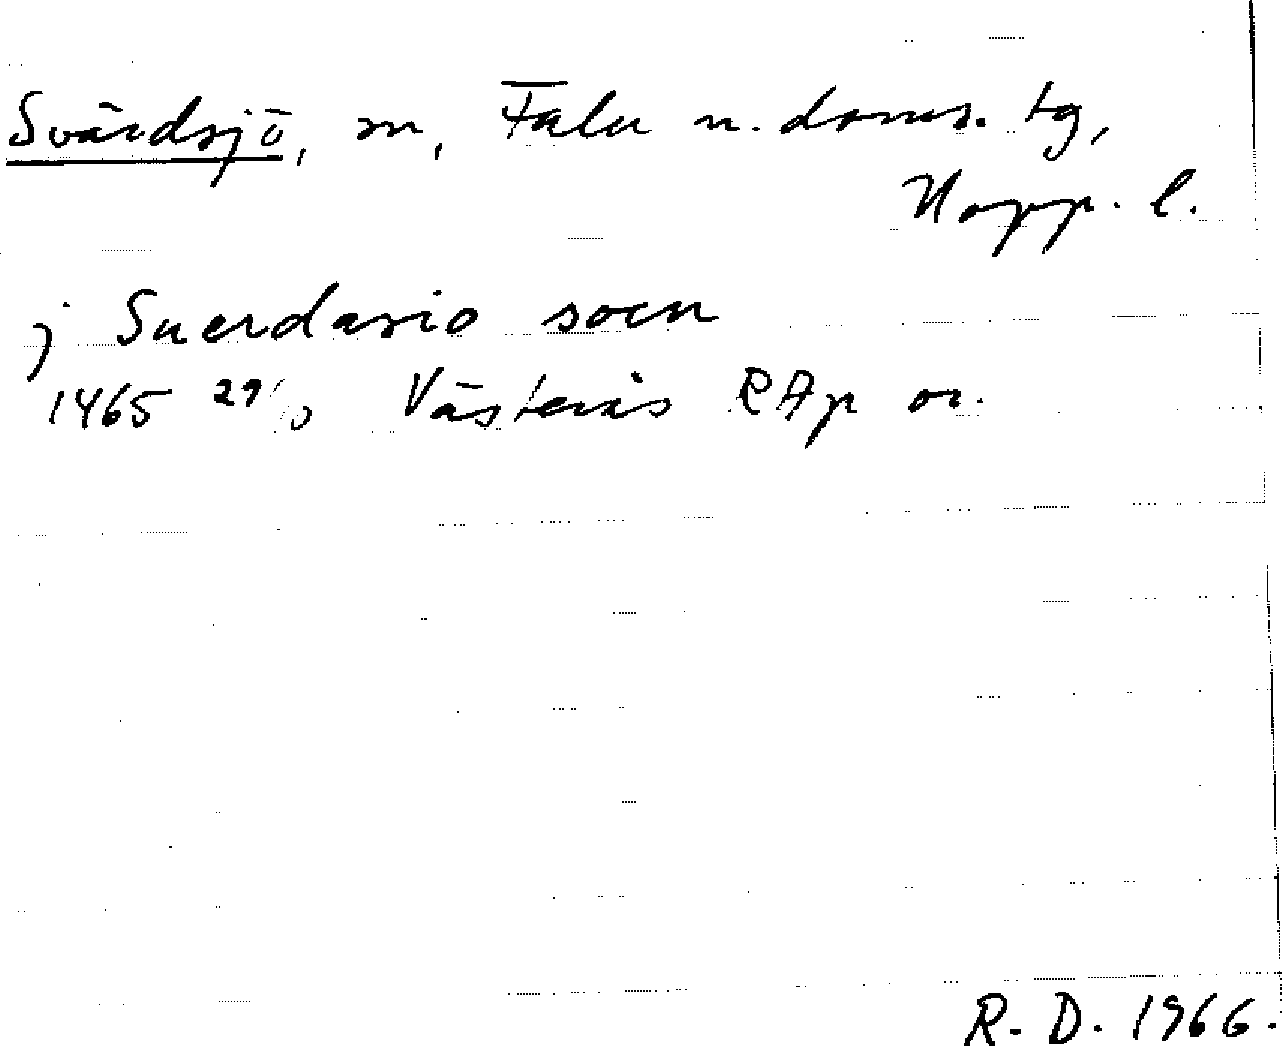 Svärdsjö, sn, Falu n. doms. tg,
Kopp. l.
j Suerdasio soen
1465 29/ Västerås RAp or.
R. D. 1966.